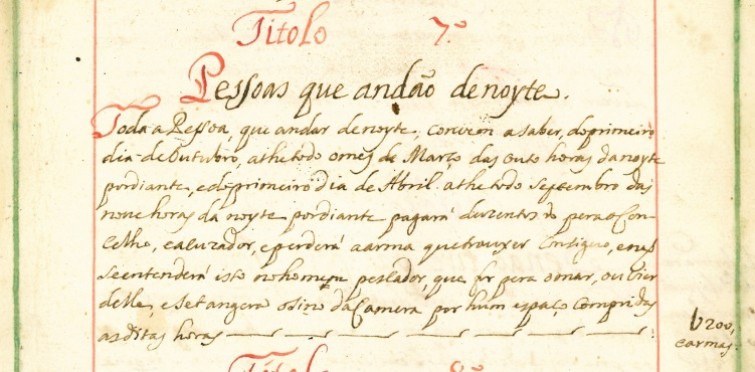 Titolo 7.º
Pessoas que andaõ denoyte.
Toda a Pessoa, que andar denoyte, convem asaber, doprimeiro
dia de Outubro, athe todo omes de Março das outo horas da noyte
pordiante, edoprimeiro dia de Abril athe todo Septembro das
nove horas da noyte pordiante pagará duzentos rs pera o Con-
celho, eacuzador, e perderá aarma que trouxer Consiguo, enaõ
se entenderá isto no homem pescador, que for pera omar, ou vier
delle, e se tangera osino da Camera por hum espaço comprido as
as ditas horas
V200,
earmas.
Titolo 8.º